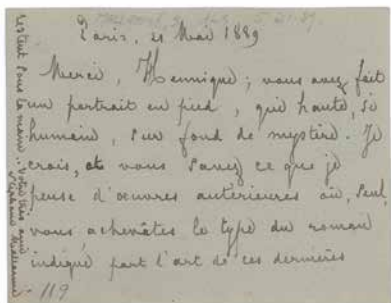 Paris, 21 Mai 1889
Merci, Hennique; vous avez fait
un portrait en pied, qui hante, si
humain, sur fond de mystère. Je
crois, et vous savez ce que je
pense d'œuvres antérieures où, seul,
vous achevâtes le type du roman
indiqué part l'art de ces dernières
119
restent sous la main. Votre très ami
Stéphane Mallarmé